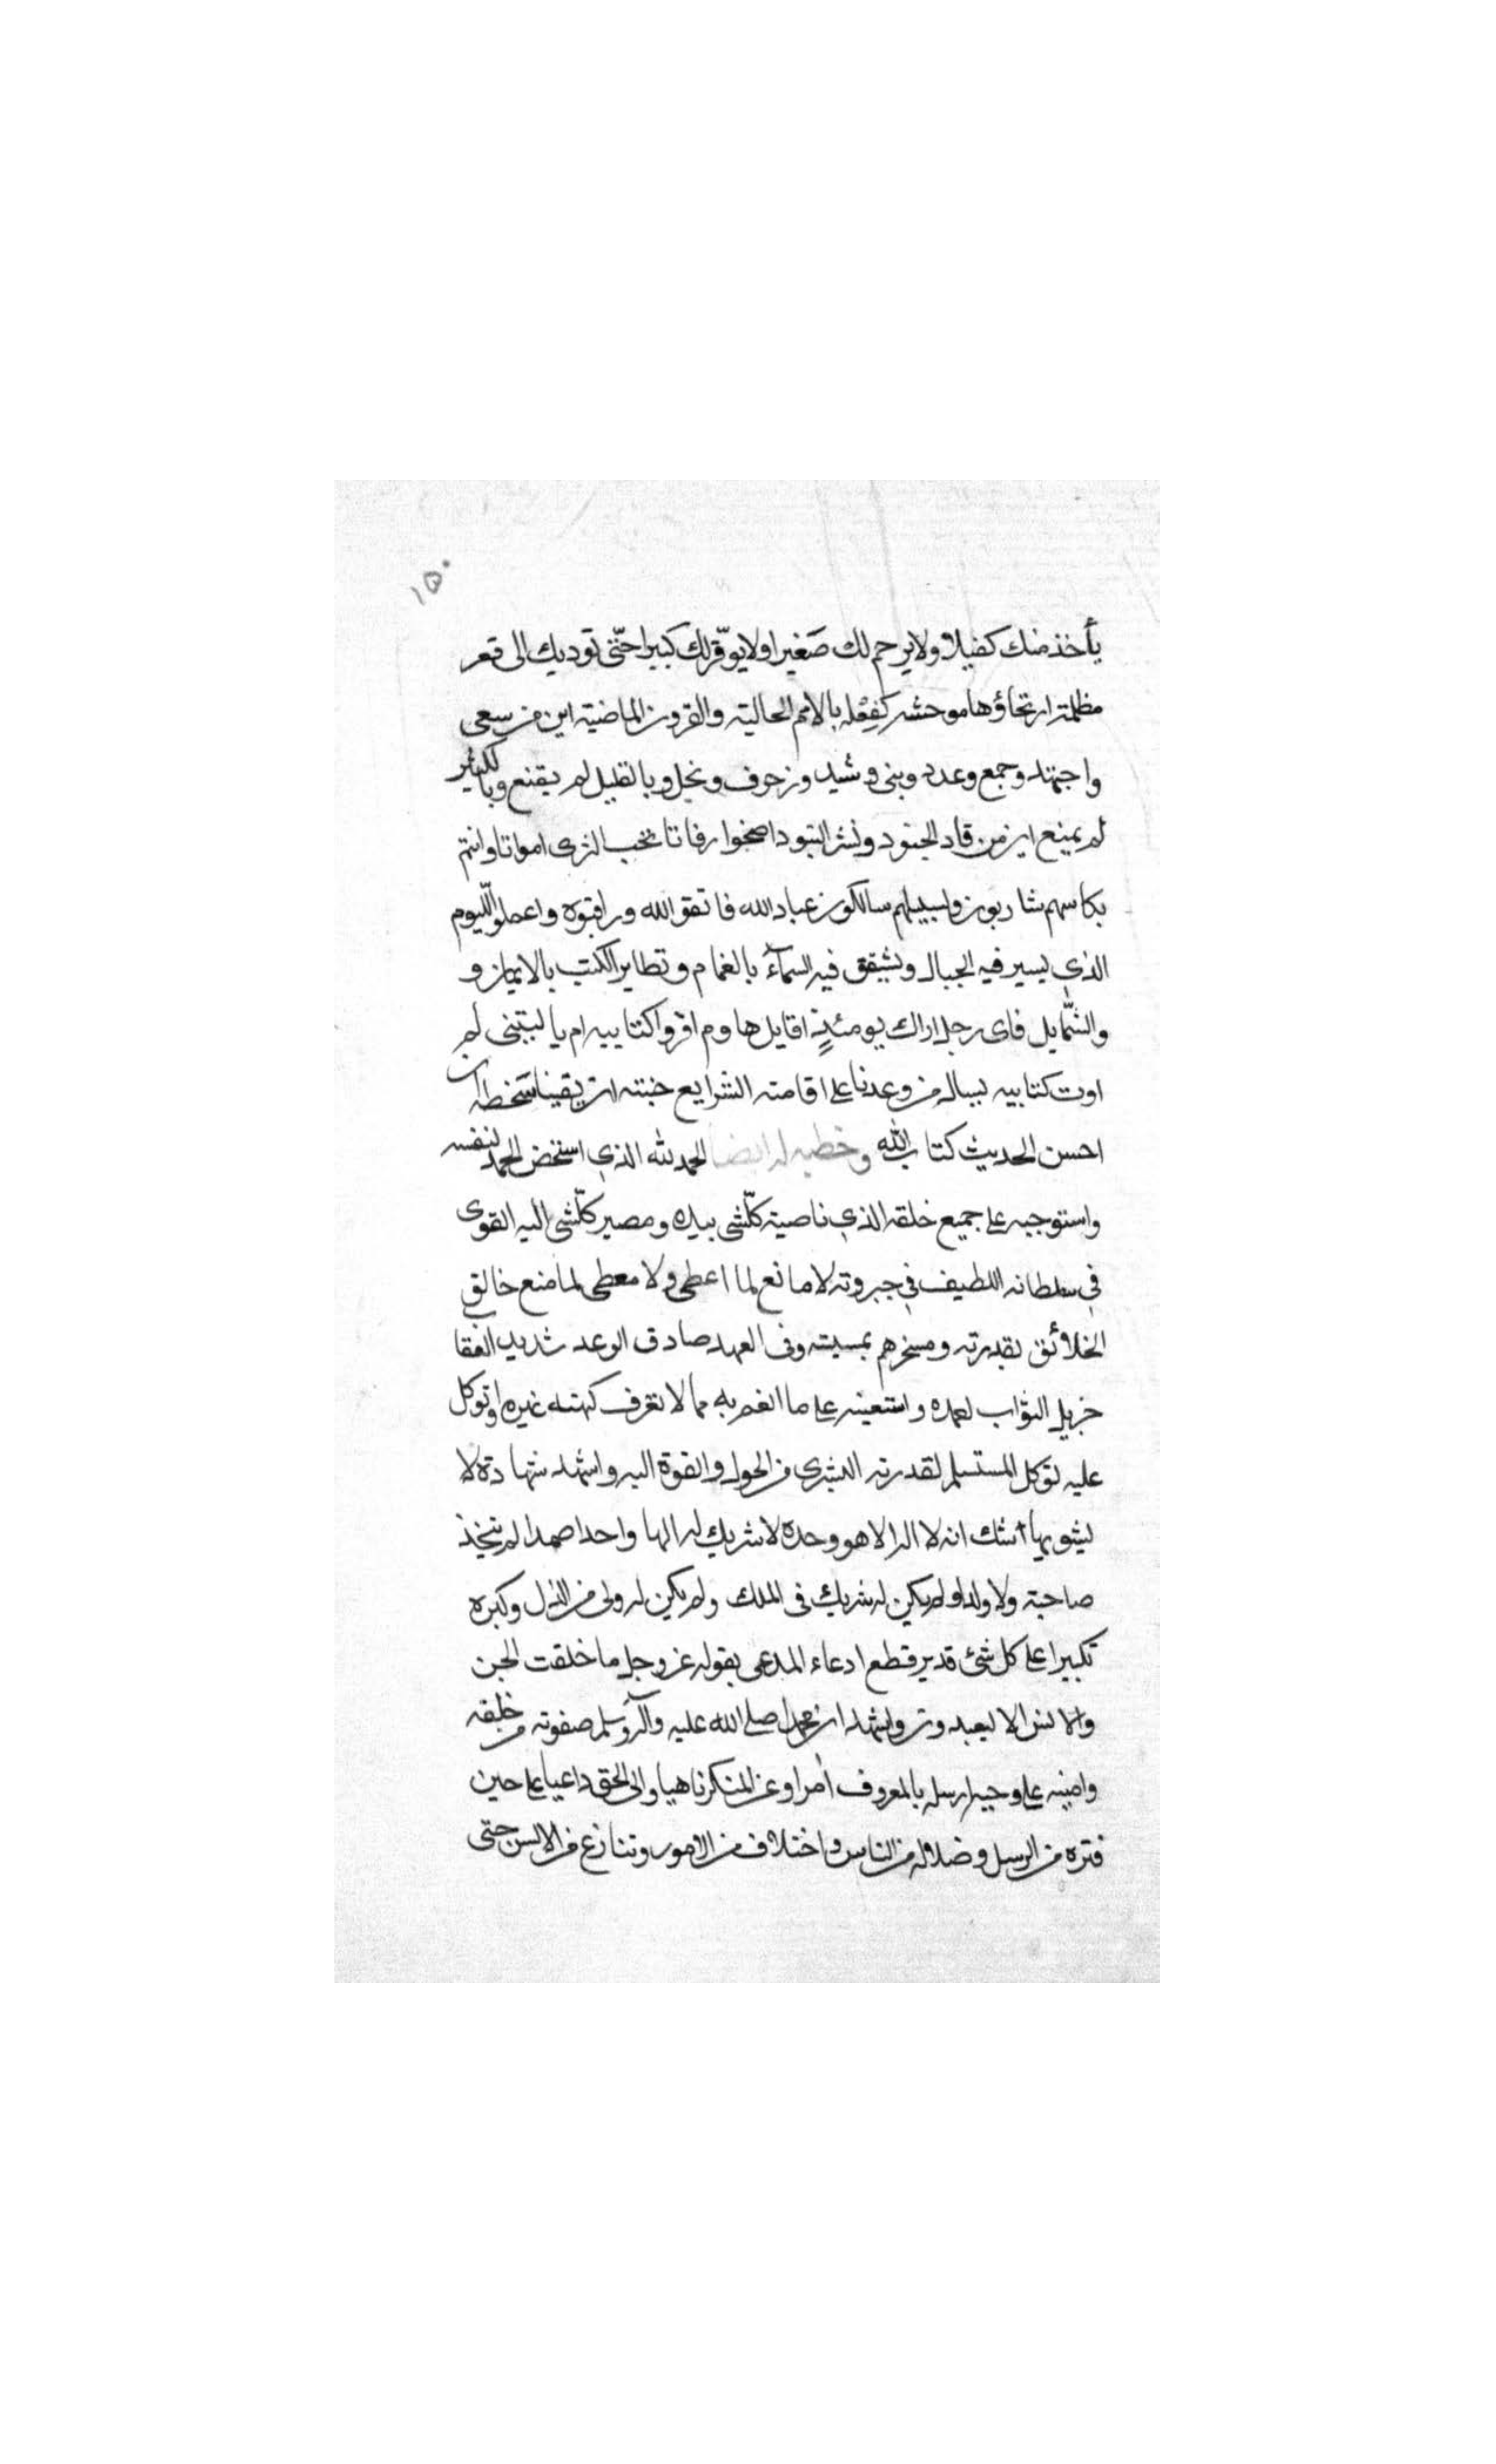 ١٥٠
يأخذ منك كفيلا ولا يرحم لك صَغيرا ولا يوقّر لك كبيرا حتّى توديك الى قعر
مظلمة ارتجاؤها موحشه كفِعْله بالامم الحاليته والقرون الماضية اين من سعى
واجتهد وجمع وعدد وبنى وشيد وزحرف ونجل وبالقليل لم يقنع وبالكثير
لم يمنع اين من قاد الجنود ونشر البنود اضحوا رفاتا تحت الثرى امواتا وانتم
بكاسهم شاربون ولسبيلهم سالكون عباد الله فاتقو الله وراقبوه واعملو اليوم
الذى يسير فيه الجبال وتشقق فيه السمآء بالغمام وتطاير الكتب بالايمان و
والشّمايل فاى رجل اراك يومئذٍ اقايل هاوم اقرؤا كتابيه ام يا ليتنى لم
اوت كتابيه يسال من وعدنا على اقامته الشرايع جنته ان يقينا سَخطه ان
احسن الحديث كتاب الله وخطبه له ايضا الحمد لله الذى استخض الحمد لنفسه
واستوجبه على جميع خلقه الذى ناصية كلّشى بيده ومصير كلّشى اليه القوى
فى سلطانه اللطيف فى جبروته لا مانع لما اعطى ولا معطى لما منع خالق
الخلائق بقدرته ومسخرهم بمسيته وفى العهد صادق الوعد شديد العقا
جزيل الثواب لعمده واستعينه على ما انعم به مما لا نعرف كهنه غيره واتوكل
عليه توكل المستسلم لقدرته المتبرى من الحول والقوة اليه واشهد شهادة لا
ليشوبها شك انه لا اله الا هو وحده لا شريك له الها واحدا صمدا لم يتخذ
صاحبة ولا ولدا ولم يكن له شريك فى الملك ولم يكن له ولى من الذل وكبره
تكبيرا على كل شئ قدير قطع ادعاء المدعى بقوله عز وجل ما خلقت الجن
والانس الا ليعبدون واشهد ان محمدا صلى الله عليه وآله وسلم صفوته من خلقه
وامينه على وحيه ارسله بالمعروف امرا وعن المنكر ناهيا والى الحق داعيا على حين
فتره من الرسل وضلاله من الناس واختلاف من الامور وتنازع من الالسن حتى